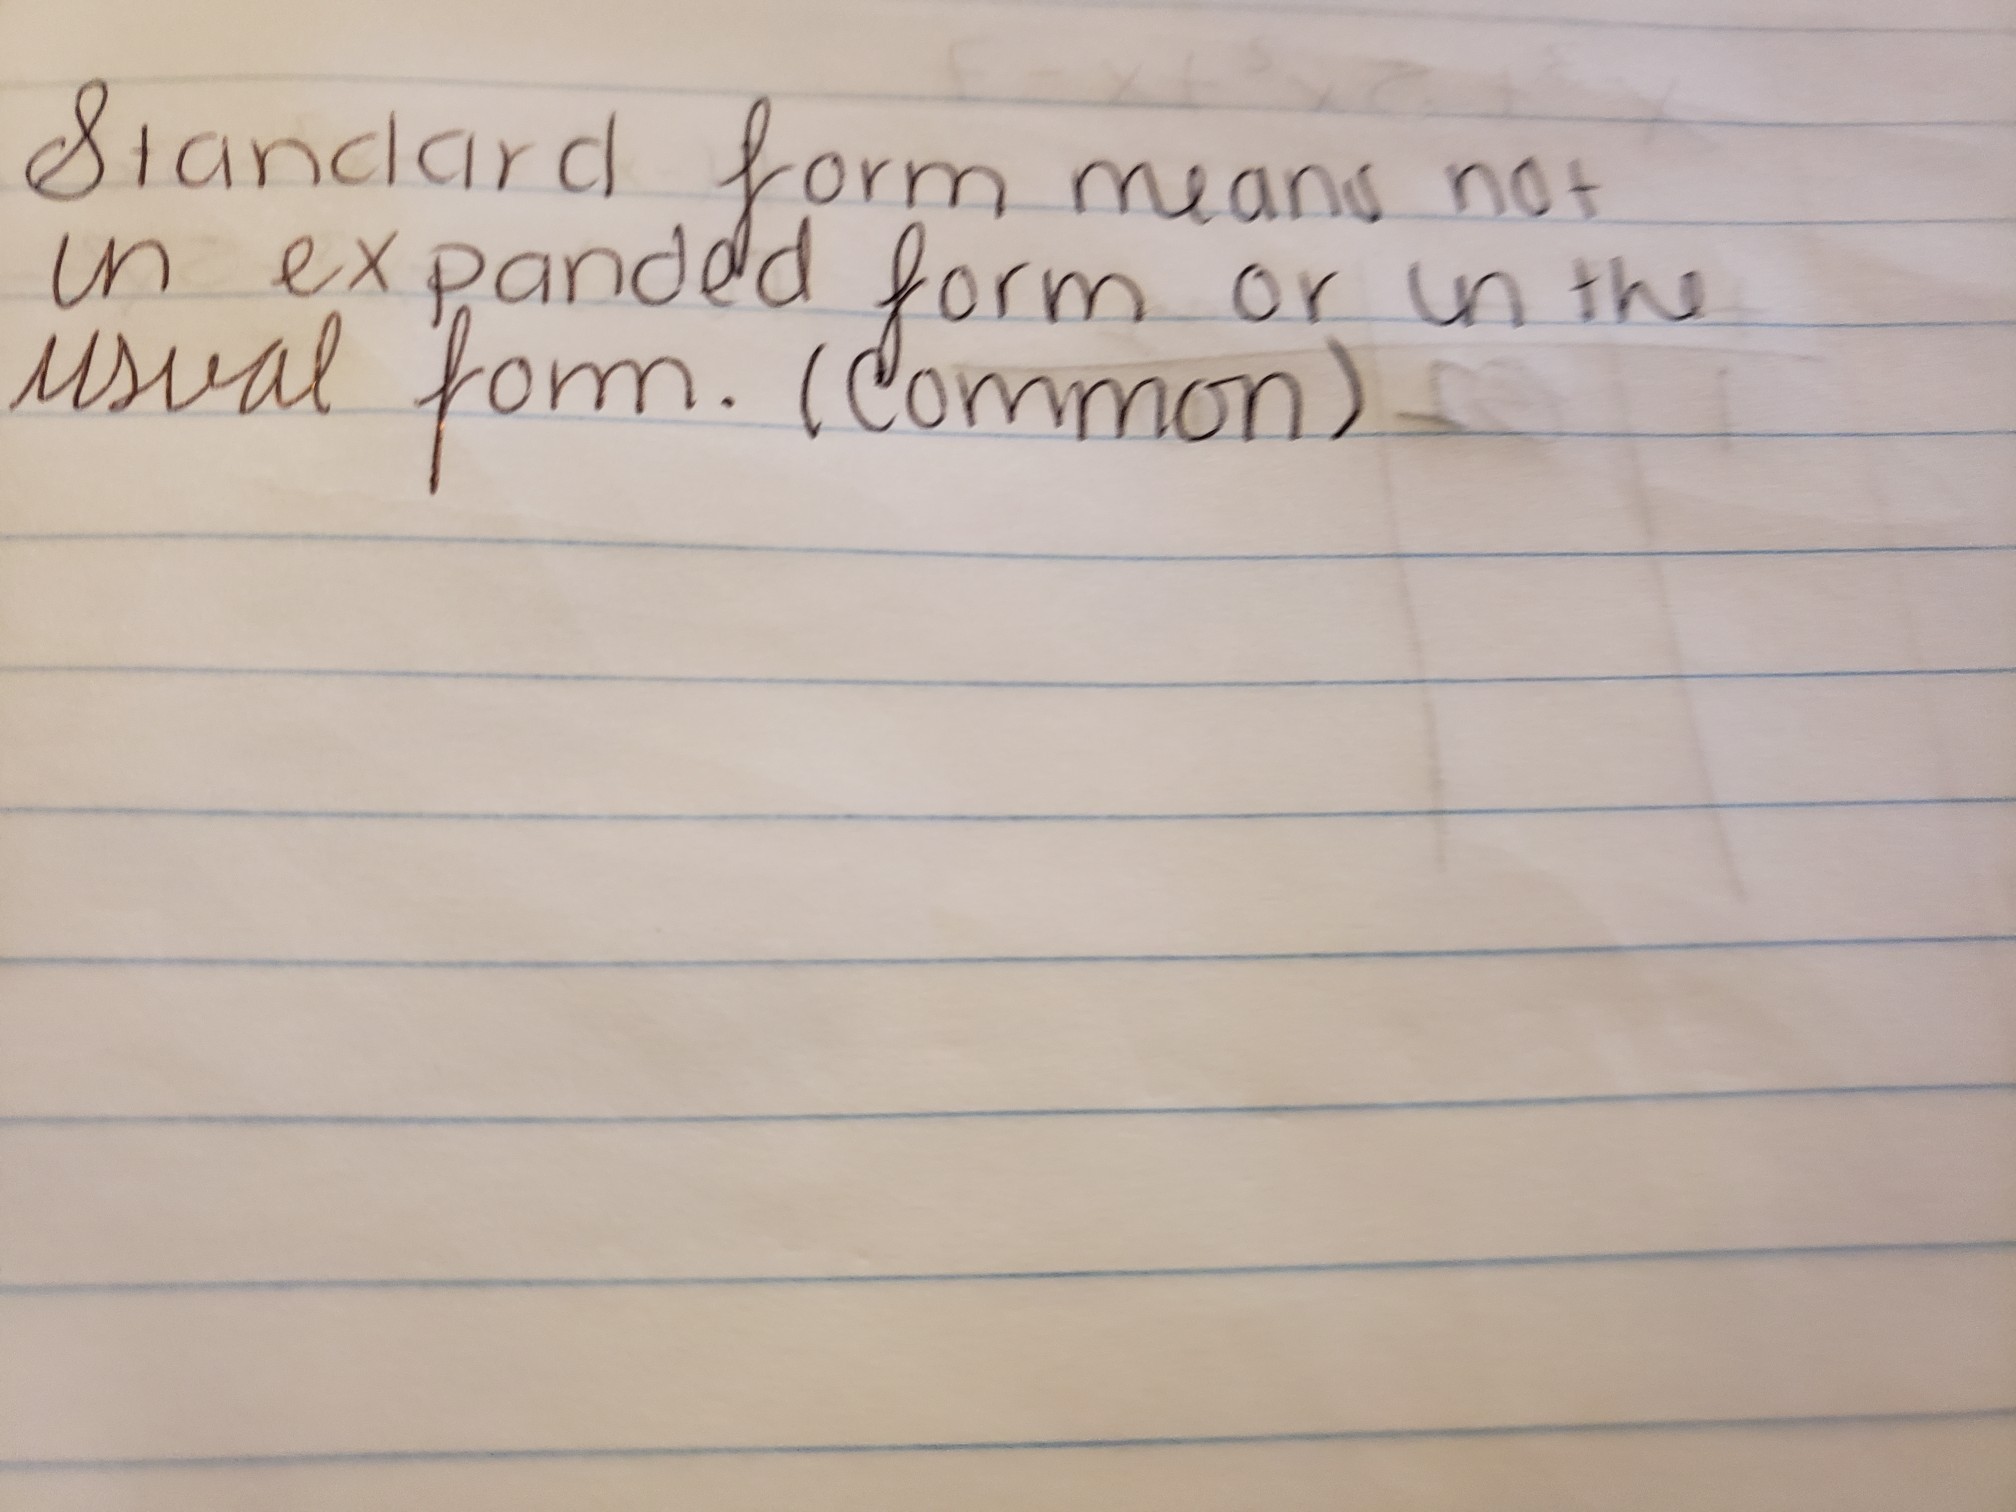 Standard form means not
in expanded form or in the
usual form. (Common)